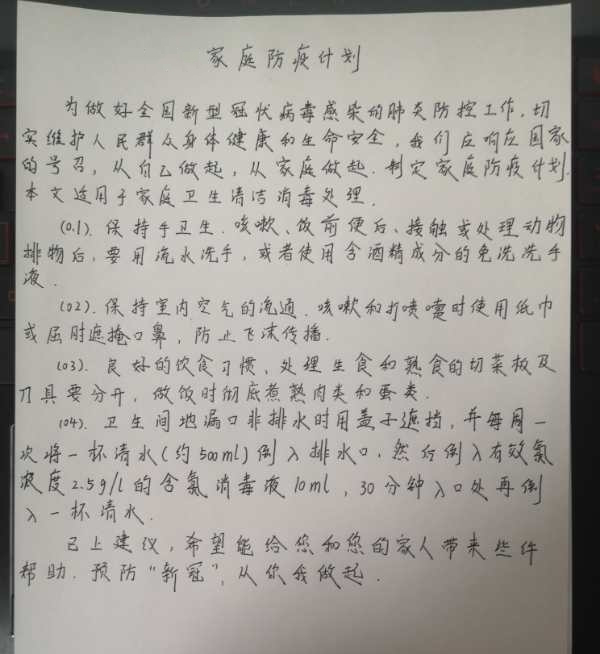 家庭防疫计划
为做好全国新型冠状病毒感染的肺炎防控工作,切
实维护人民群众身体健康和生命安全,我们应响应国家
的号召,从自己做起,从家庭做起.制定家庭防疫计划.
本文适用于家庭卫生清洁消毒处理.
(01).保持手卫生.咳嗽、饭前便后、接触或处理动物
排物后,要用流水洗手,或者使用含酒精成分的免洗洗手
液.
(02).保持室内空气的流通.咳嗽和打喷嚏时使用纸巾
或屈肘遮掩口鼻,防止飞沫传播.
(03).良好的饮食习惯,处理生食和熟食的切菜板及
刀具要分开,做饭时彻底煮熟肉类和蛋类.
(04).卫生间地漏口非排水时用盖子遮挡,并每周一
次将一杯清水(约500ml)倒入排水口,然后倒入有效氯
浓度2.5g/l的含氯消毒液10ml,30分钟入口处再倒
入一杯清水.
已上建议,希望能给您和您的家人带来些许
帮助.预防“新冠”,从你我做起.